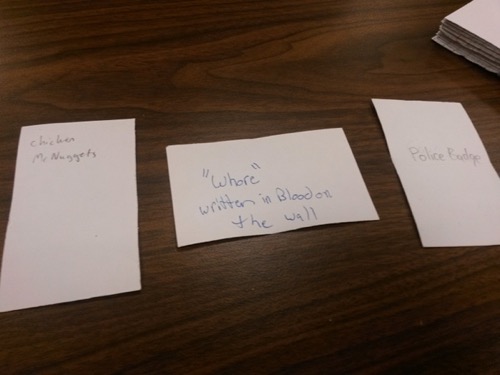 chicken
McNuggets
"Whore"
written in Blood on
the wall
Police Badge